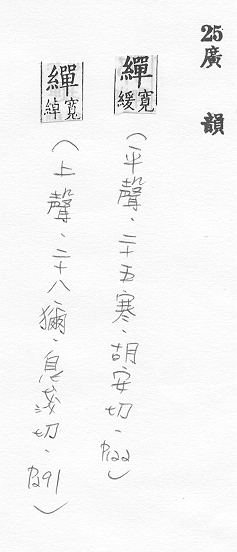 25廣 韻
繟寬緩(平聲.二十五寒.胡安切.P122)
繟寬綽(上聲.二十八獮.息淺切.P291)